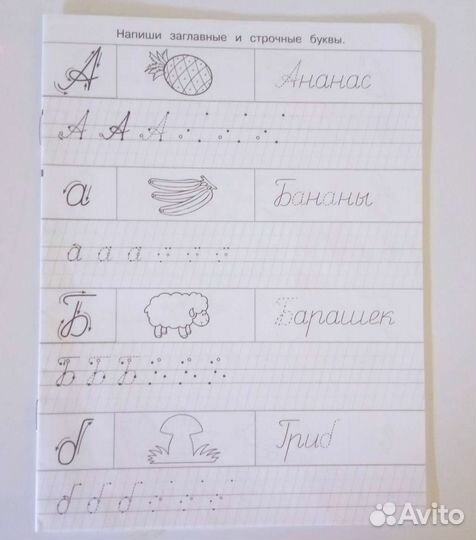 Напиши заглавные и строчные буквы.
А Ананас
А А А
а Бананы
а а а
Б Барашек
Б Б Б
б Гриб
б б б
Avito